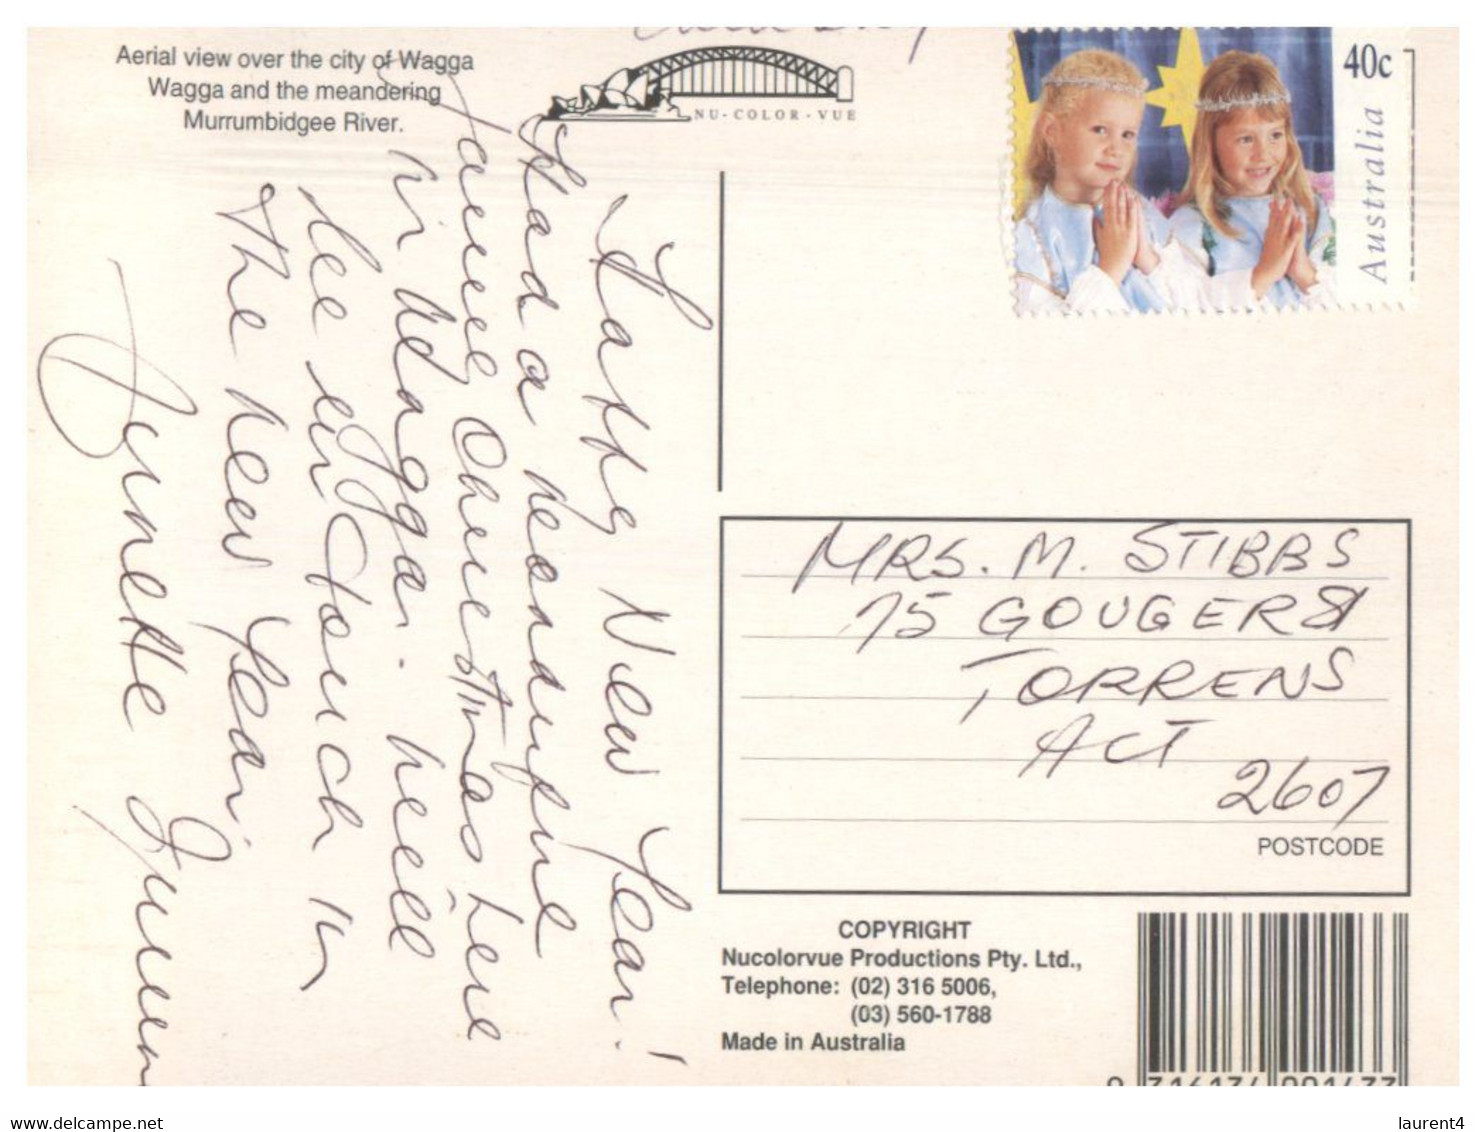 Aerial view over the city of Wagga
Wagga and the meandering
Murrumbidgee River.
NU-COLOR-VUE
40c
Australia
Happy New Year!
Had a wonderful
family Christmas here
in Wagga. We'll
be in touch in
the new Year.
Lynette
MRS. M. STIBBS
75 GOUGER St
TORRENS
ACT
2607
POSTCODE
COPYRIGHT
Nucolorvue Productions Pty. Ltd.,
Telephone: (02) 316 5006,
(03) 560-1788
Made in Australia
9 316134 001433
www.delcampe.net
laurent4